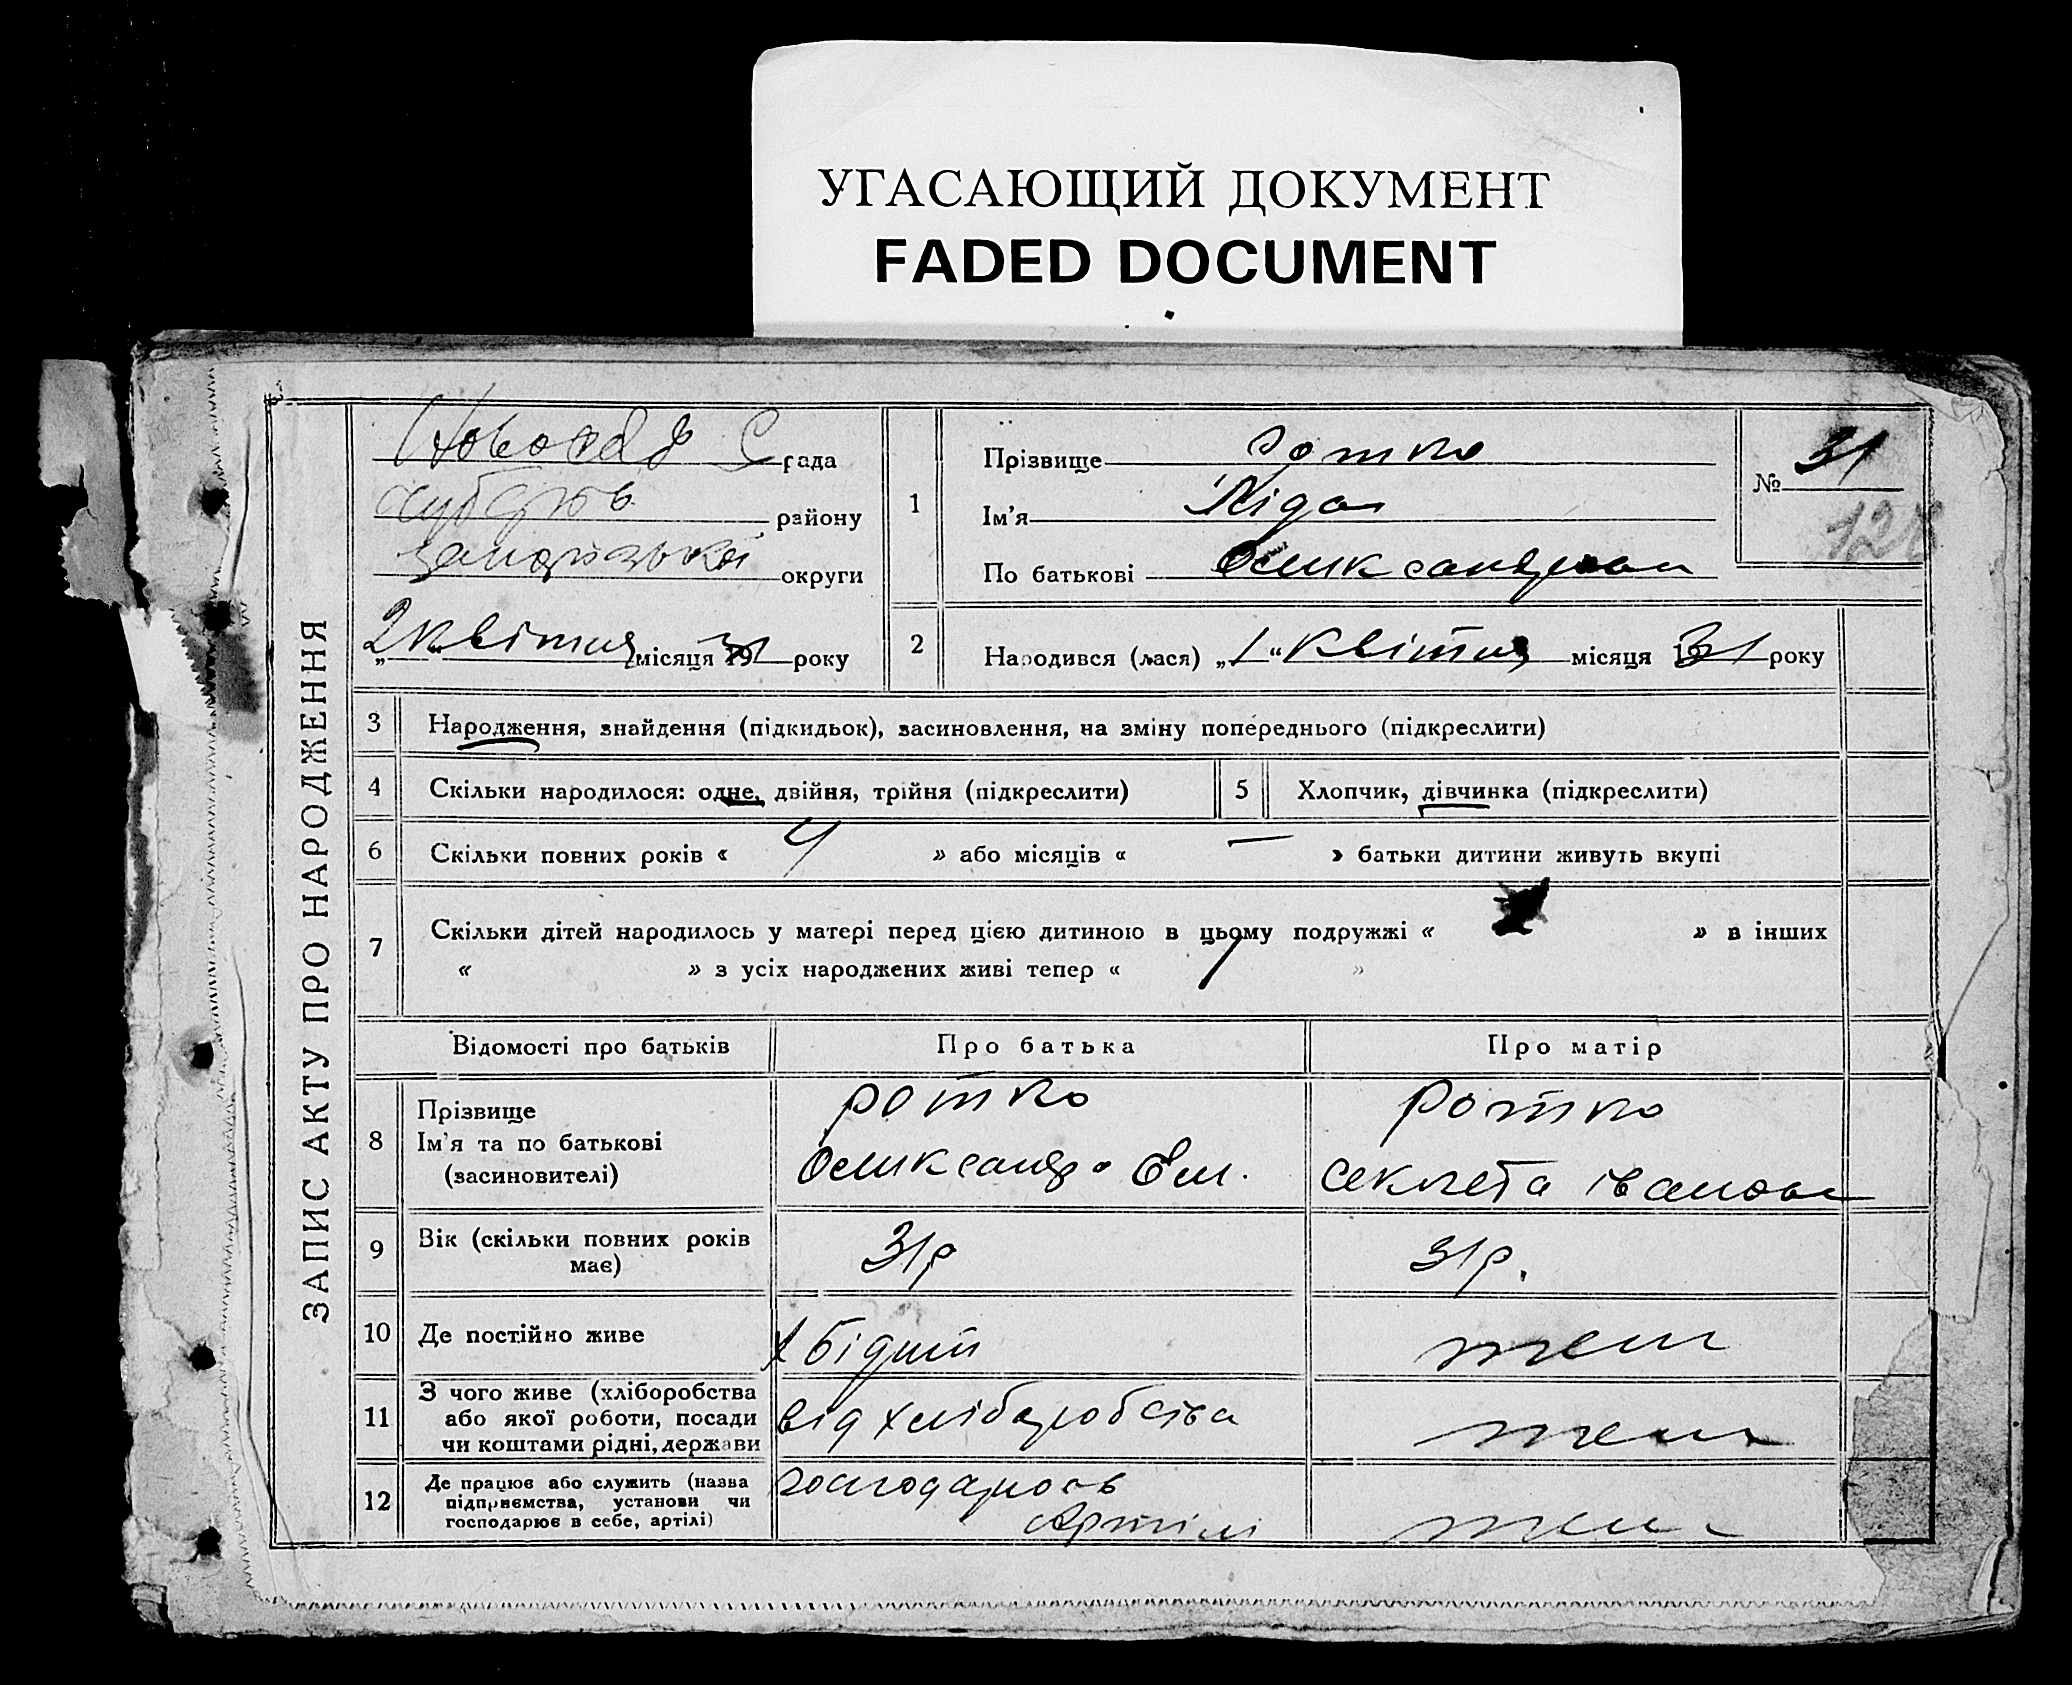 УГАСАЮЩИЙ ДОКУМЕНТ
FADED DOCUMENT
ЗАПИС АКТУ ПРО НАРОДЖЕННЯ
рада
району
округи
2 квітня місяця 31 року
1
Прізвище Ротко
Ім'я Ліда
По батькові
№ 31
2
Народився (лася) „1“ квітня місяця 31 року
3 Народження, знайдення (підкидьок), засиновлення, на зміну попереднього (підкреслити)
4 Скільки народилося: одне, двійня, трійня (підкреслити)
5 Хлопчик, дівчинка (підкреслити)
6 Скільки повних років « 4 » або місяців « — » батьки дитини живуть вкупі
7 Скільки дітей народилось у матері перед цією дитиною в цьому подружжі « » в інших
« » з усіх народжених живі тепер « 1 »
Відомості про батьків Про батька Про матір
8
Прізвище
Ім'я та по батькові
(засиновителі)
Ротко
Ротко
9
Вік (скільки повних років
має)
31р
31р.
10 Де постійно живе
11
З чого живе (хліборобства
або якої роботи, посади
чи коштами рідні, держави
від хліборобства
12
Де працює або служить (назва
підприємства, установи чи
господарює в себе, артілі)
Артілі